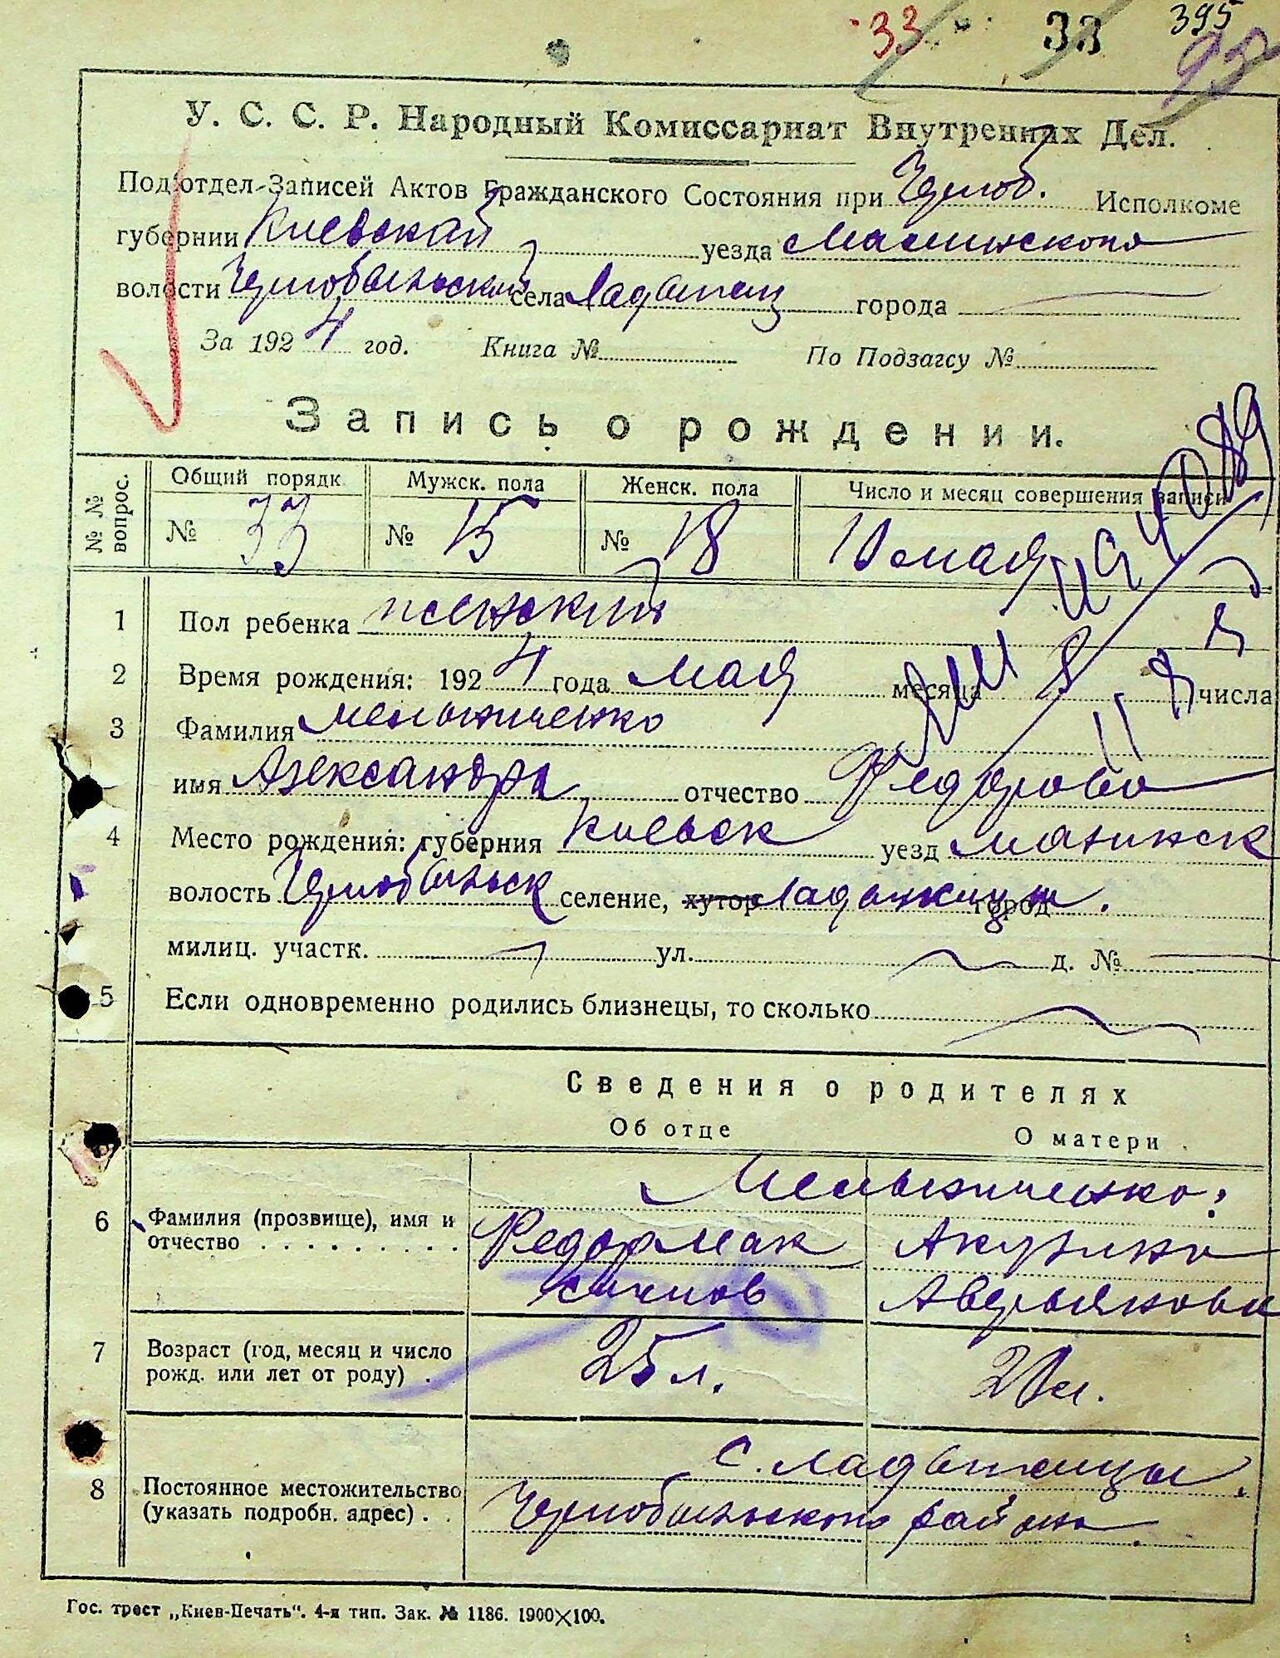 33 33 395
У. С. С. Р. Народный Комиссариат Внутренних Дел.
Подотдел Записей Актов Гражданского Состояния при Черноб. Исполкоме
губернии Киевской уезда Малинского
волости Чернобыльской села Ладыжец города
За 1924 год. Книга № По Подзагсу №
Запись о рождении.
№№ вопрос. Общий порядк. Мужск. пола Женск. пола Число и месяц совершения записи
№ 33 № 15 № 18 10 мая
1 Пол ребенка женский
2 Время рождения: 1924 года мая месяца 8 числа
3 Фамилия Мельниченко
имя Александра отчество Федорова
4 Место рождения: губерния Киевск уезд Малинск
волость Чернобыльск селение, хутор город
милиц. участк. ул. д. №
5 Если одновременно родились близнецы, то сколько
Сведения о родителях
Об отце О матери
Мельниченко:
6 Фамилия (прозвище), имя и Федор Мак Акулина
отчество симов Аверьянова
7 Возраст (год, месяц и число 25 л.
рожд. или лет от роду)
с. Ладыжицы
8 Постоянное местожительство
(указать подробн. адрес) Чернобыльского района
Гос. трест „Киев-Печать". 4-я тип. Зак. № 1186. 1900×100.